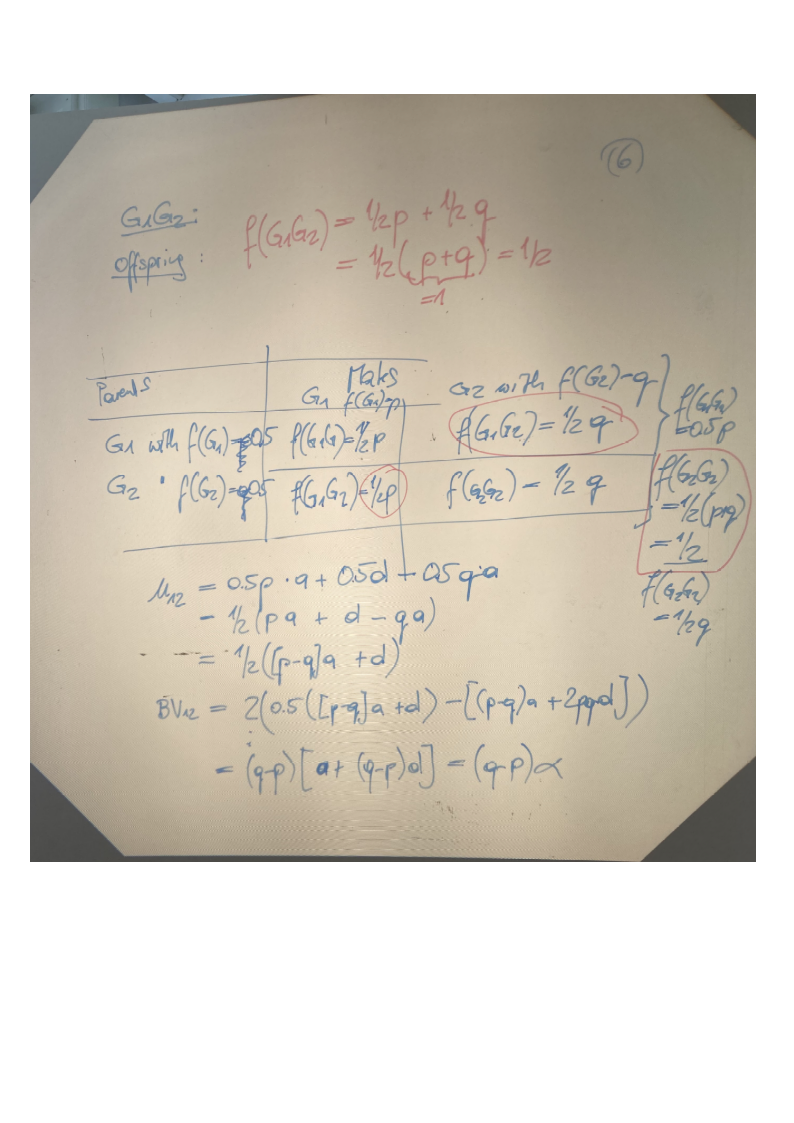 (6)
G1G2:
Offspring:
f(G1G2) = 1/2p + 1/2q
= 1/2(p+q) = 1/2
=1
Parents
G1 f(G1)=p
G2 with f(G2)=q
G1 with f(G1)=0.5
f(G1G1)=1/2p
f(G1G2)=1/2q
=0.5p
G2 " f(G2)=0.5
f(G1G2)=1/2p
f(G2G2)=1/2q
f(G2G2)
=1/2(p+q)
=1/2
f(G2G2)
=1/2q
μ12 = 0.5p·a + 0.5d - 0.5q·a
= 1/2(pa + d - qa)
= 1/2([p-q]a + d)
BV12 = 2(0.5([p-q]a + d) - [(p-q)a + 2pqd])
= (q-p)[a + (q-p)d] = (q-p)α